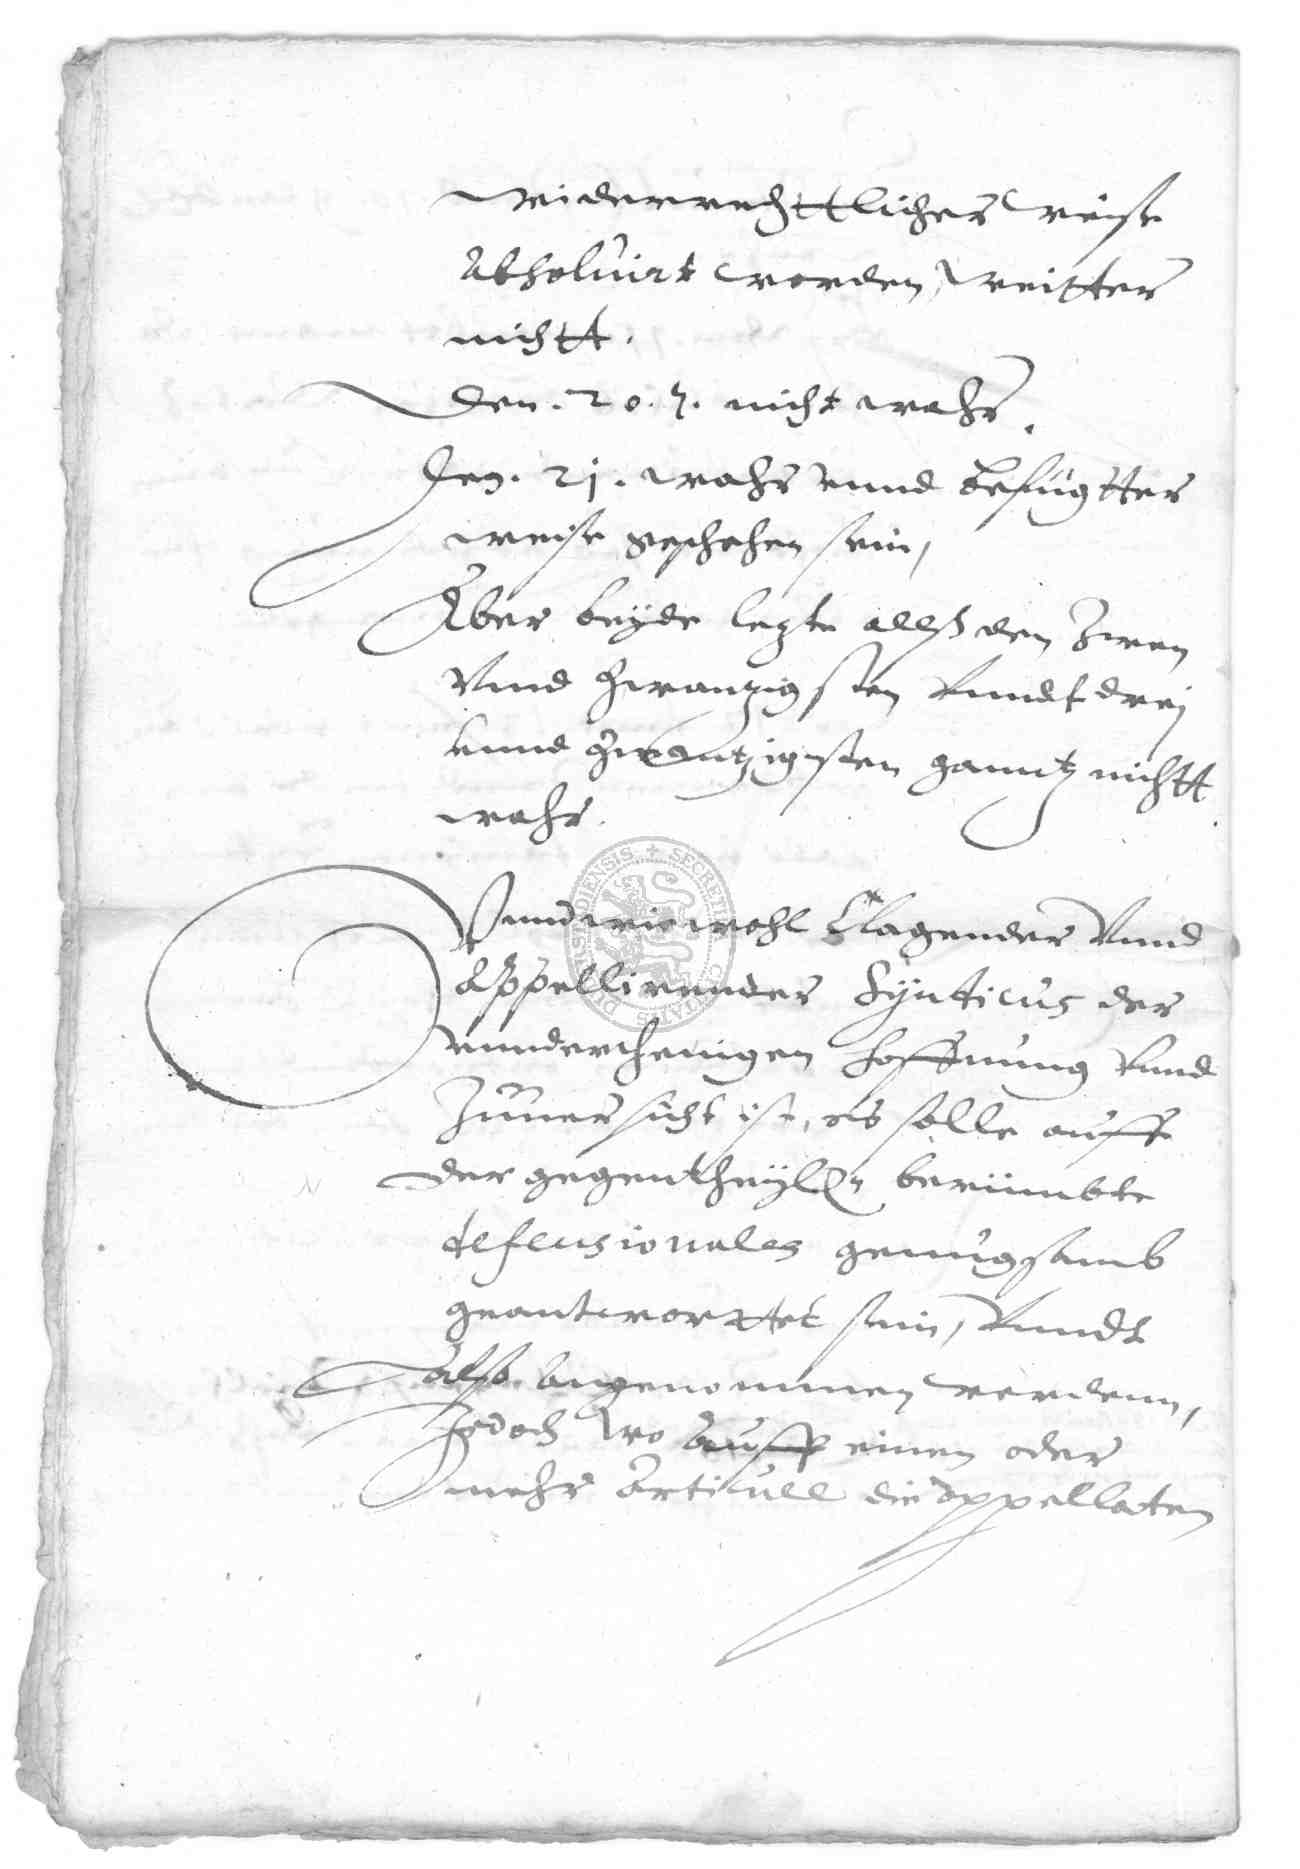 widerrechttlicher weise
Abholuirt worden, weitter
nichtt.
Den. 20. nicht wahr.
Den. 21. wahr vnnd befugtter
weise geschehen sein,
Aber beyde lezte allß den Zwen
Vnnd zwanzigsten Vnndt drej
vnnd zwantzigsten ganntz nichtt
wahr.
Vnnd wie wohl Clagender Vnnd
Appellirender Synticus der
vnnderthenigen hoffnung Vnnd
Zuuersicht ist, es solle auff
der gegentheyll berümbte
defensionales genugsamb
geantworttet sein, Vnndt
also angenommen werdenn,
Jedoch wo auff einen oder
mehr Articull die appellaten
SECRETUM CIVITATIS DUDERSTADIENSIS